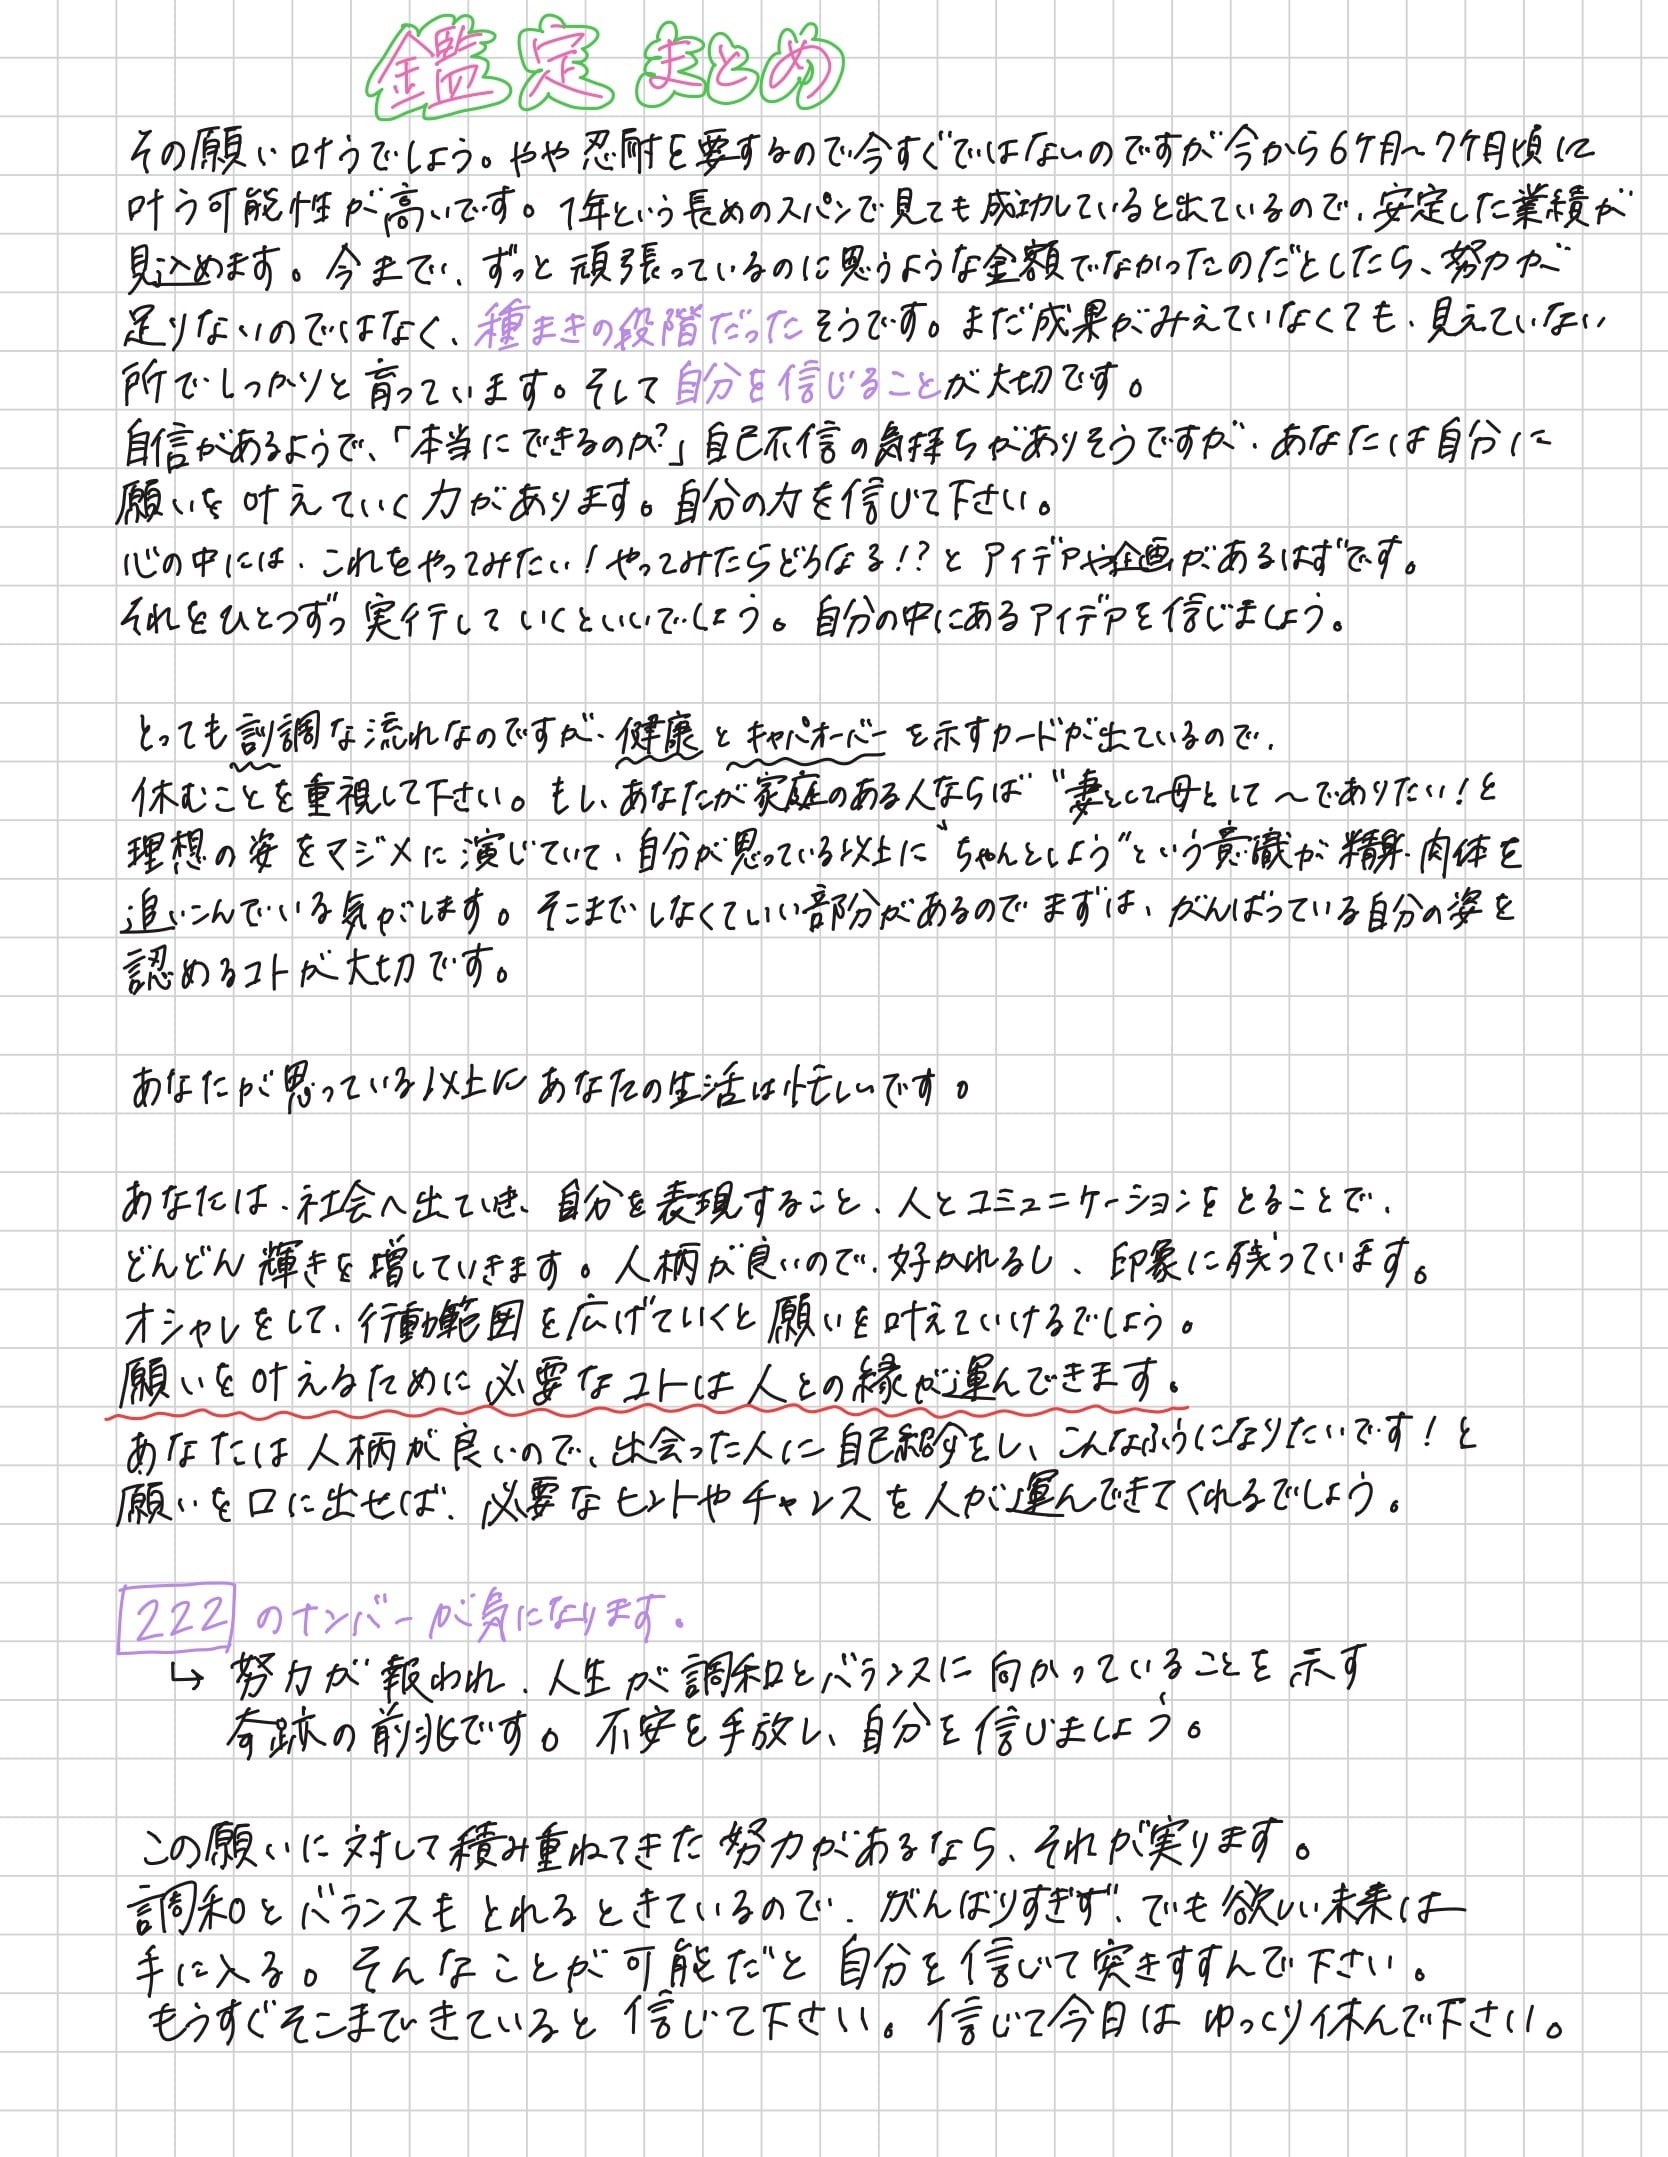 鑑定まとめ
その願い叶うでしょう。やや忍耐を要するので今すぐではないのですが今から6ケ月〜7ケ月頃に
叶う可能性が高いです。1年という長めのスパンで見ても成功していると出ているので、安定した業績が
見込めます。今まで、ずっと頑張っているのに思うような金額でなかったのだとしたら、努力が
足りないのではなく、種まきの段階だったそうです。まだ成果がみえていなくても、見えていない
所でしっかりと育っています。そして自分を信じることが大切です。
自信があるようで、「本当にできるのか?」自己不信の気持ちがありそうですが、あなたは自分に
願いを叶えていく力があります。自分の力を信じて下さい。
心の中には、これをやってみたい!やってみたらどうなる!?とアイデアや企画があるはずです。
それをひとつずつ実行していくといいでしょう。自分の中にあるアイデアを信じましょう。
とっても調な流れなのですが、健康とキャパオーバーを示すカードが出ているので、
休むことを重視して下さい。もし、あなたが家庭のある人ならば“妻として母として〜でありたい!と
理想の姿をマジメに演じていて、自分が思っている以上に“ちゃんとしよう”という意識が精神・肉体を
追いこんでいる気がします。そこまでしなくていい部分があるのでまずは、がんばっている自分の姿を
認めるコトが大切です。
あなたが思っている以上にあなたの生活は忙しいです。
あなたは、社会へ出ていき、自分を表現すること、人とコミュニケーションをとることで、
どんどん輝きを増していきます。人柄が良いので、好かれるし、印象に残っています。
オシャレをして、行動範囲を広げていくと願いを叶えていけるでしょう。
願いを叶えるために必要なコトは人との縁が運んできます。
あなたは人柄が良いので、出会った人に自己紹介をし、こんなふうになりたいです!と
願いを口に出せば、必要なヒントやチャンスを人が運んできてくれるでしょう。
222のナンバーが気になります。
↳ 努力が報われ、人生が調和とバランスに向かっていることを示す
奇跡の前兆です。不安を手放し、自分を信じましょう。
この願いに対して積み重ねてきた努力があるなら、それが実ります。
調和とバランスもとれるときているので、がんばりすぎず、でも欲しい未来は
手に入る。そんなことが可能だと自分を信じて突きすすんで下さい。
もうすぐそこまできていると信じて下さい。信じて今日はゆっくり休んで下さい。